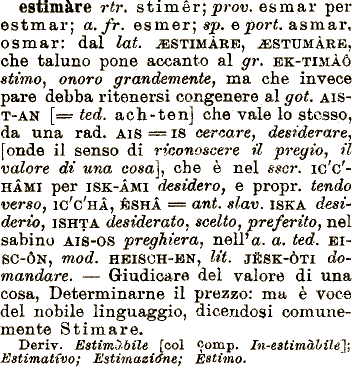 estimàre rtr. stimêr; prov. esmar per
estmar; a. fr. esmer; sp. e port. asmar,
osmar: dal lat. ÆSTIMÀRE, ÆSTUMÀRE,
che taluno pone accanto al gr. EK-TIMÀÔ
stimo, onoro grandemente, ma che invece
pare debba ritenersi congenere al got. AIS-
T-AN [= ted. ach-ten] che vale lo stesso,
da una rad. AIS = IS cercare, desiderare,
[onde il senso di riconoscere il pregio, il
valore di una cosa], che è nel sscr. IC'C'-
HÂMI per ISK-ÂMI desidero, e propr. tendo
verso, IC'C'HÂ, ÊSHÂ = ant. slav. ISKA desi-
derio, ISHṬA desiderato, scelto, preferito, nel
sabino AIS-OS preghiera, nell'a. a. ted. EI-
SC-ÔN, mod. HEISCH-EN, lit. JËSK-ÒTI do-
mandare. — Giudicare del valore di una
cosa, Determinarne il prezzo: ma è voce
del nobile linguaggio, dicendosi comune-
mente Stimare.
Deriv. Estimàbile [col comp. In-estimàbile];
Estimatívo; Estimazióne; Èstimo.